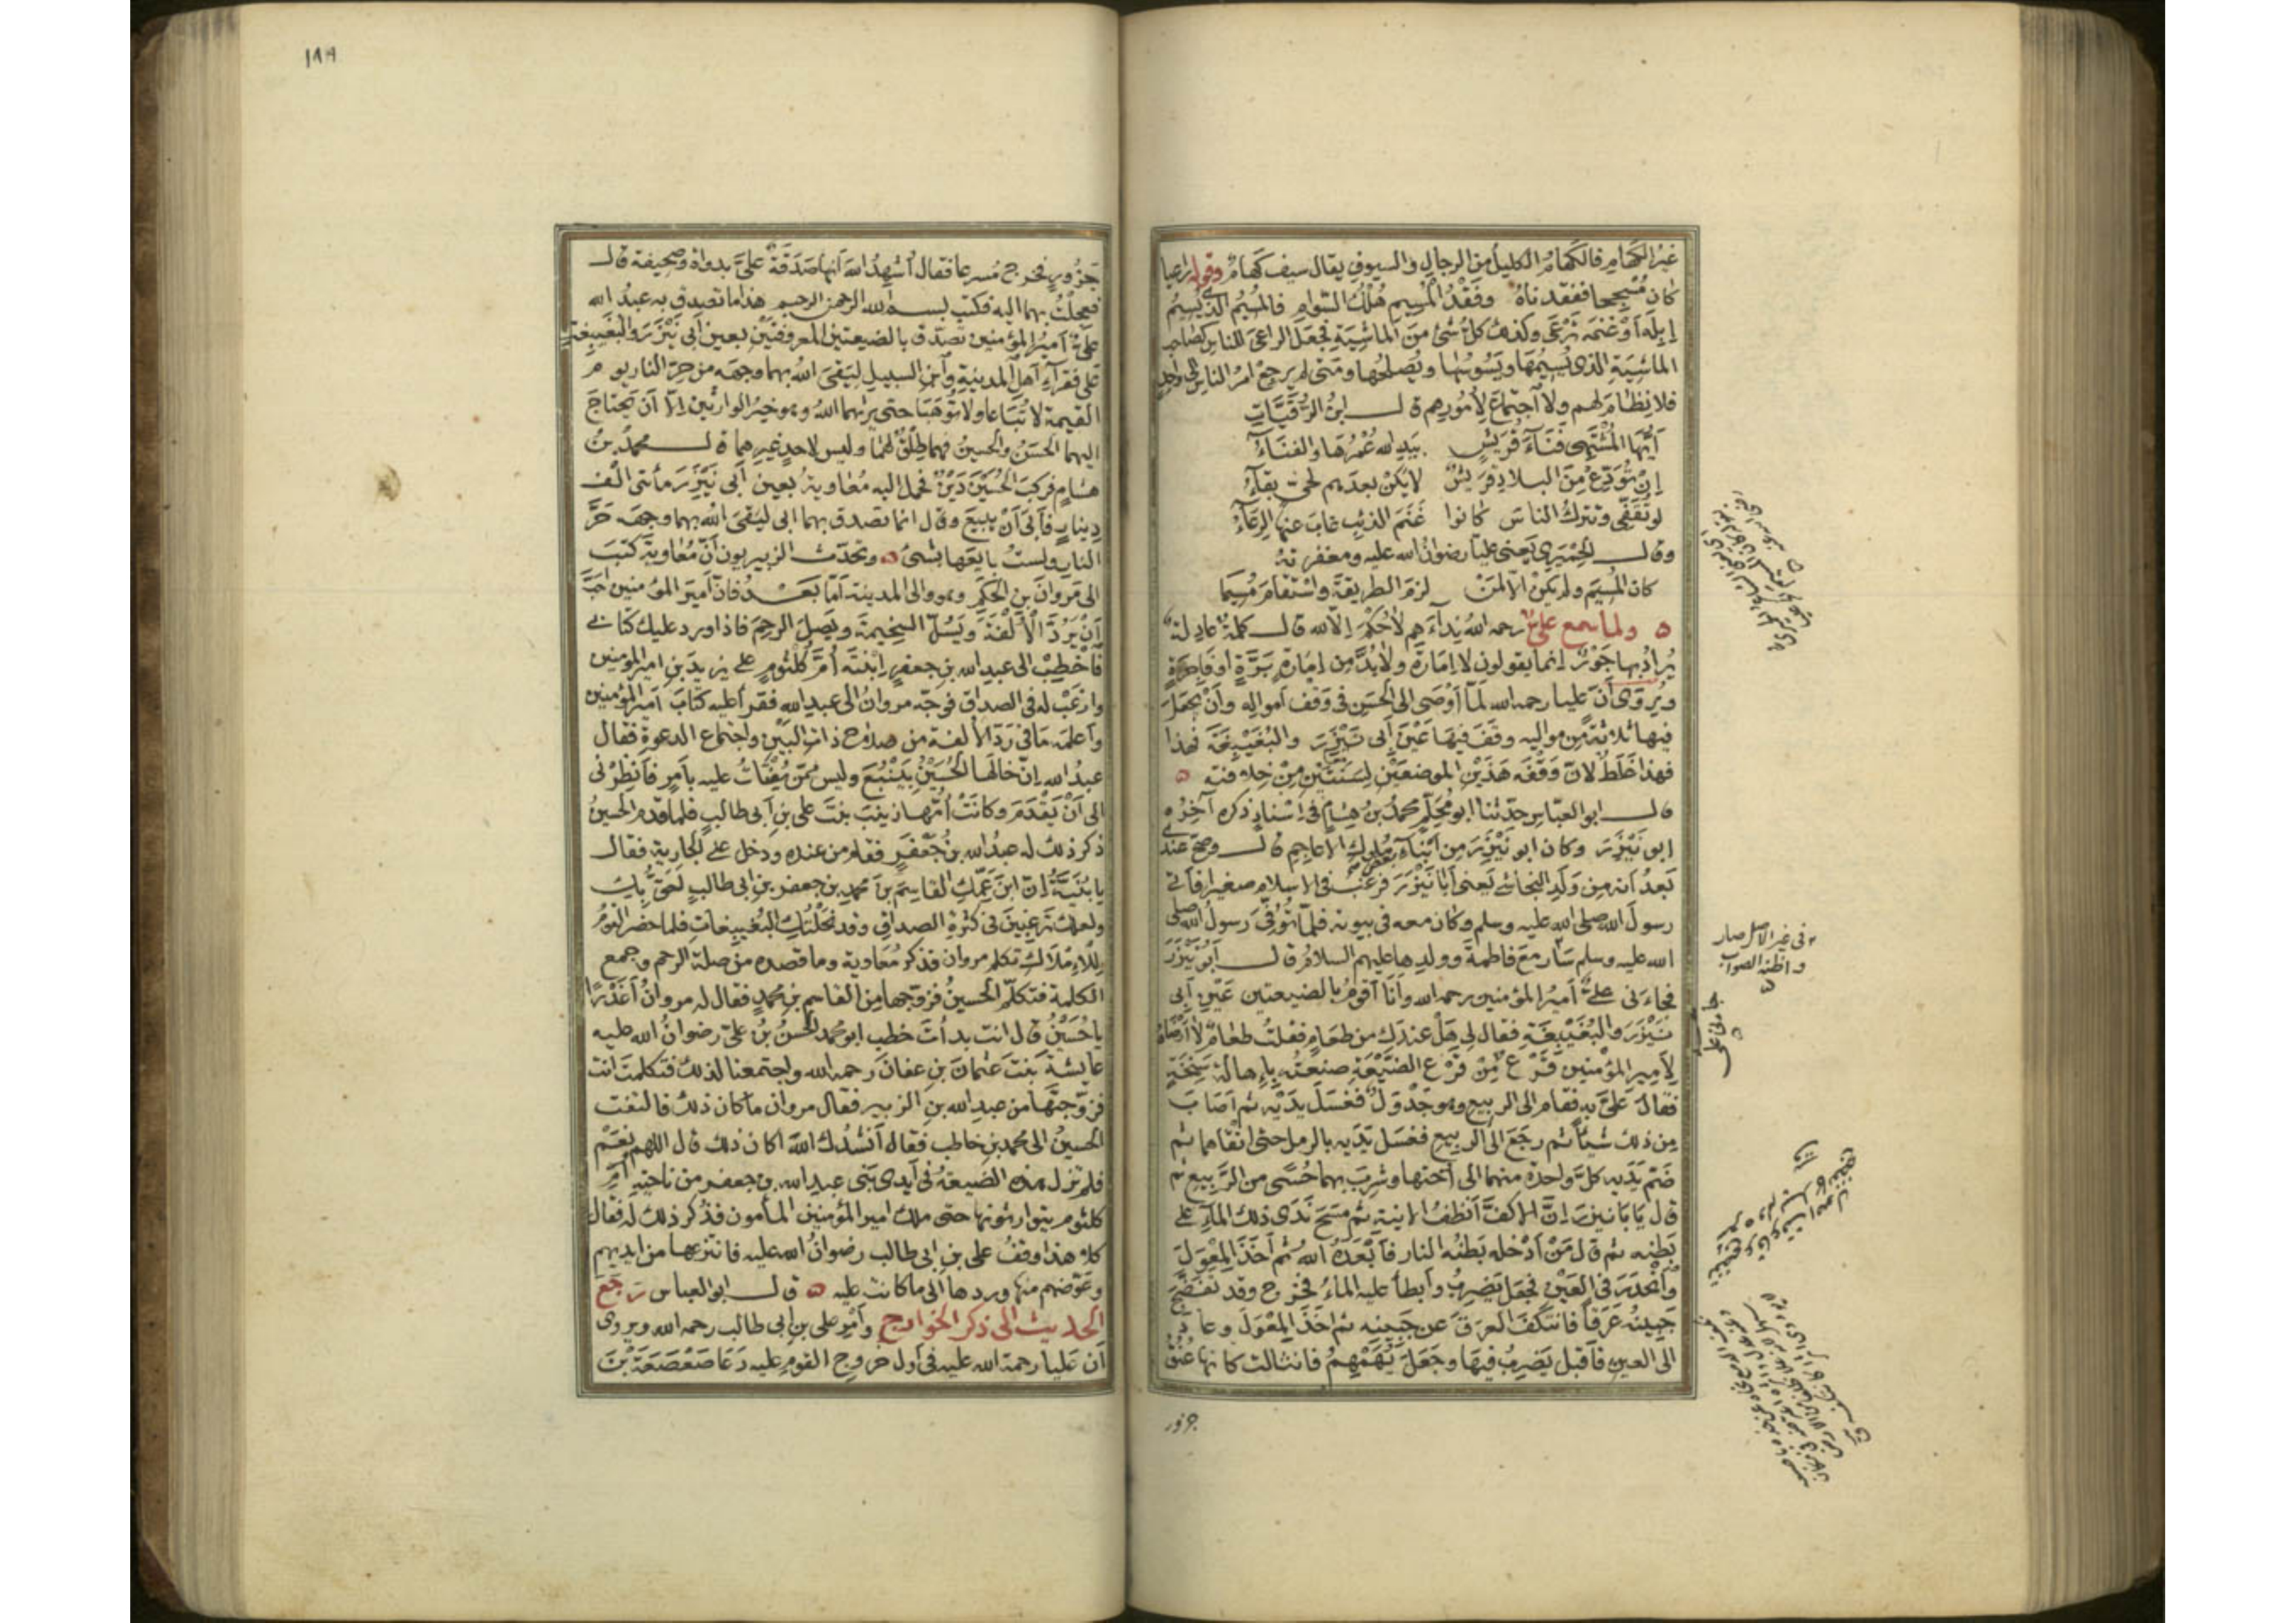 غَيْرُ الكَهَامِ فالكَهَامُ الكليلُ من الرجالِ والسيوفِ يقال سيف كَهَامٌ وقوله راعيا
كان مُسْجِحا ففقدناهُ وفَقْدُ الْمُسِيمِ هُلْكُ السَّوَامِ فالمُسِيمُ الذي يُسِيمُ
إبلَه أوْ غنمَه تَرْعَى وكذلك كلُّ شئ من الماشِيَةِ فجَعَلَ الراعىَ للناسِ كصاحب
الماشِيَةِ الذى يُسِيمُهَا ويَسُوسُها ويُصْلِحُها ومَتَى لم يرجع امرُ الناسِ الى واحدٍ
فلا نِظامَ لهم ولا اجتماعَ لأمُورِهم قال ابنُ الرُّقَيَّاتِ
أيُّهَا المُشْتَهِى فَنَاءَ قُرَيْشٍ بيَدِ الله عُمْرُهَا والفنَاءُ
إنْ تُوَدِّعْ مِنَ البلادِ قُرَيْشٌ لا يَكُنْ بعدهم لحيٍّ بقآءُ
لو تُقَفِّى وتترك الناسَ كانوا غَنَمَ الذئبِ غابَ عنها الرِعَآءُ
وقال الحِمْيَرِي يَعنى عليّا رضوانُ الله عليه ومغفرته
كان المُسِيمَ ولم يكُن إلّا لمَنْ لزمَ الطريقةَ واسْتَقامَ مُسِيمَا
ولما سمع علىٌّ رحمه اللهُ نِدآءَهم لا حُكْمَ إلّا لله قال كلمةٌ عادلة
يُرادُ بها جَوْرٌ إنما يقولون لا إمَارَةَ ولا بُدَّ مِن إمَارَةٍ بَرَّةٍ أو فَاجِرَةٍ
ويُرْوَى أنّ عليا رحمه الله لَمّا أوْصَى الى الحَسَنِ فى وَقْفِ أموالِه وأنْ يَجْعَلَ
فيها ثلاثةً من مواليه وقَفَ فيهَا عَيْنَ أبى نَيْزَرَ والبُغَيْبِغَةَ فهذا
فهذا غَلَطٌ لأنّ وَقْفَه هَذَيْنِ الموضعَيْنِ لِسَنَتَيْنِ مِنْ خِلافته
قال ابو العبّاس حدّثنا ابو مُحَلِّمٍ محمدُ بنُ هِشامٍ فى إسْنادٍ ذكره آخِرُه
ابو نَيْزَرَ وكان ابو نَيْزَرَ مِن أبْنَآءِ مُلوكِ الأعاجم قال وصحّ عندى
بَعدُ أنه مِن وَلَدِ النجاشى يَعنى أبَا نَيْزَرَ فرَغِبَ فى الاسلامِ صغيرا فأتى
رسولَ الله صلى الله عليه وسلم وكان معه فى بيوته فلمّا تُوُفِّىَ رسولُ الله صلى
الله عليه وسلم سَارَ مَعَ فاطمةَ وولدِها عليهم السلامُ قال أبو نَيْزَرَ
فجاءَنى علىٌّ أميرُ المؤمنين رحمه الله وأنا أقومُ بالضيعتين عَيْنِ أبى
نَيْزَرَ والبُغَيْبِغَةِ فقال لى هَلْ عندك من طعامٍ فقلتُ طعامٌ لا أرْضَاهُ
لأميرِ المؤمنين قَرْعٌ مِّنْ قَرْعِ الضَّيْعَةِ صنعتُه بإهالةٍ سَنِخَةٍ
فقال عَلَىَّ به فقام الى الرَّبيعِ وهو جَدْوَلٌ فغسَلَ يدَيْه ثم أصَابَ
مِن ذلك شيئاً ثم رجَعَ الى الرَّبيعِ فغسَلَ يَدَيه بالرمل حتى انقاهما ثم
ضَمّ يَدَيه كلَّ واحدة منهما الى أختها وشرِبَ بهما حُسًى من الرَّبيع ثم
قال يَابَا نيزر إنَّ الأكفَّ أنظفُ الآنيةِ ثم مسَحَ نَدَى ذلك المآءِ على
بَطنِه ثم قال مَنْ أدْخله بَطنُه النار فأبْعَدَهُ اللهُ ثم أخَذَ المِعْوَلَ
وانْحَدَرَ فى العَيْنِ فجعَل يَضرِبُ وأبطأ عليه الماءُ فخرج وقد تَفَضَّجَ
جَبِينُه عَرَقًا فانتكَفَ العرقَ عن جَبِينه ثم أخَذَ المِعْوَلَ وعاد
الى العينِ فأقبل يَضرِبُ فيهَا وجَعَلَ يُهَمْهِمُ فانثالت كانها عُنُقُ
جزور
فى غير الاصل صار
واظنه الصواب
١٨٨
جَزُورٍ فخرج مُسرعا فقال أُشهِدُ اللهَ أنّها صَدَقَةٌ علىَّ بدواة وصحيفة قال
فعجلْتُ بهما اليه فكتب بسم الله الرحمن الرحيم هذا ما تصدق به عبدُ الله
علىٌّ أميرُ المؤمنين تصَدّق بالضيعتين المعروفتَيْنِ بعين أبى نَيْزَرَ والبُغَيبِغةِ
على فقرآءِ أهلِ المدينةِ وابْنِ السبيل ليَقىَ اللهُ بهما وجهَه من حرّ النار يوم
القيمة لا تُبَاعا ولا تُوهَبَا حتى يرثهما اللهُ وهو خيرُ الوارثين إلّا أن يَحتاجَ
اليهما الحَسَنُ والحسينُ فهما طِلْقٌ لهُمَا وليس لاحدٍ غيرهما قال محمدُ بنُ
هشامٍ فركِبَ الحُسَيْنَ دَيْنٌ فحمل اليه مُعاويةُ بعينِ أبى نَيْزَرَ مأتى ألف
دينارٍ فأبَى أنْ يبيعَ وقال انما تصدق بهما ابى ليَقىَ اللهُ بهما وجهَه حَرَّ
النارِ ولستُ بايَعَها بشئ وتحدّث الزبيريون أنّ مُعاويةَ كتبَ
الى مَروانَ بنِ الحَكَم وهو والى المدينة أمّا بَعْدُ فانّ أميرَ المؤمنين أحَبَّ
أنْ يَرُدَّ الْأُلْفةَ ويَسُلَّ السخِيمةَ ويَصِلَ الرحِمَ فاذا ورد عليك كتابى
فاخطِبْ الى عبدِ الله بن جعفرٍ ابْنتَه أمَّ كُلثومٍ على يزيدَ بنِ امير المؤمنين
وارْغَبْ له فى الصداق فوجّه مروانُ الى عبدِ الله فقرأ عليه كتابَ أمير المؤمنين
وأعلمَه ما فى رَدّ الألفة من صلاح ذاتِ البَيْنِ واجتماع الدعوةِ فقال
عبدُ الله إنّ خالَهَا الحُسَيْنُ بيَنْبُعَ وليس ممّن يُفتَاتُ عليه بأمرٍ فأنظِرْنى
الى أنْ يَقْدَمَ وكانَتْ أمّها زينبَ بنتَ على بنِ أبى طالبٍ فلما قدم الحسينُ
ذكر ذلك له عبدُ الله بنُ جَعْفَرٍ فقام من عنده ودخل على الجارية فقال
يا بُنَيَّةُ إنّ ابنَ عَمِّكِ القاسِمَ بنَ محمدِ بنِ جعفر بنِ ابى طالبٍ أحَقُّ بكِ
ولعلك تَرغبينَ فى كثرةِ الصداقِ وقد نَحَلْتُكِ البُغَيبِغاتِ فلما حضر القومُ
للإمْلاكِ تكلم مروان فذكر مُعَاوية وما قصده من صلة الرحم وجمع
الكلمة فتكلّم الحسينُ فزوّجها من القاسِمِ بنِ محمدٍ فقال له مروانُ أغَدْرًا
يا حُسَيْنُ قال انت بدأتَ خطب ابو محمد الحسنُ بنُ علىٍّ رضوانُ الله عليه
عايشةَ بنتَ عثمانَ بنِ عفانَ رحمه الله واجتمعنا لذلك فتكلمتَ انت
فزوّجتَهَا من عبدِ الله بنِ الزبير فقال مروان ما كان ذلك فالتفت
الحسينُ الى محمدِ بنِ حاطب فقال أنشُدُك اللهَ أكان ذلك قال اللهم نعَمْ
فلم تزل هذه الضَيعةُ فى أيدى بَنى عبدِ الله بن جعفر من ناحيةِ أمِّ
كلثوم يتوارثونها حتى ملك امير المؤمنين المأمون فذكر ذلك له فقال
كلا هذا وقْفُ على بنِ ابى طالب رضوانُ الله عليه فانتزعها من ايديهم
وعَوّضهم منها وردها الى ما كانت عليه قال ابو العباس رَجَعَ
الحديث الى ذكر الخوارج وأمْرِ على بنِ أبى طالب رحمه الله ويروى
أن عليا رحمة الله عليه فى أول خروج القوم عليه دَعَا صَعْصَعَةَ بْنَ